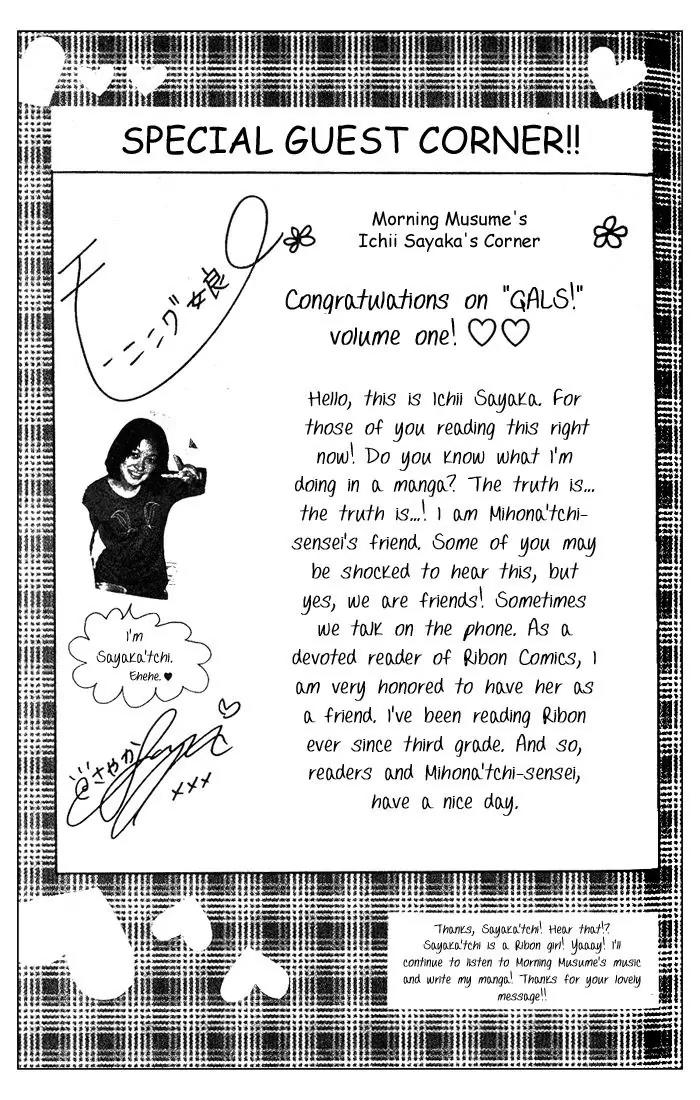 SPECIAL GUEST CORNER!!
Morning Musume's
Ichii Sayaka's Corner
モーニング女良
Congratulations on "GALS!"
volume one! ♡♡
Hello, this is Ichii Sayaka. For
those of you reading this right
now! Do you know what I'm
doing in a manga? The truth is...
the truth is...! I am Mihona'tchi-
sensei's friend. Some of you may
be shocked to hear this, but
yes, we are friends! Sometimes
we talk on the phone. As a
devoted reader of Ribon Comics, I
am very honored to have her as
a friend. I've been reading Ribon
ever since third grade. And so,
readers and Mihona'tchi-sensei,
have a nice day.
I'm
Sayaka'tchi.
Ehehe.♥
@さやか
xxx
Thanks, Sayaka'tchi! Hear that!?
Sayaka'tchi is a Ribon girl! Yaaay! I'll
continue to listen to Morning Musume's music
and write my manga! Thanks for your lovely
message!!